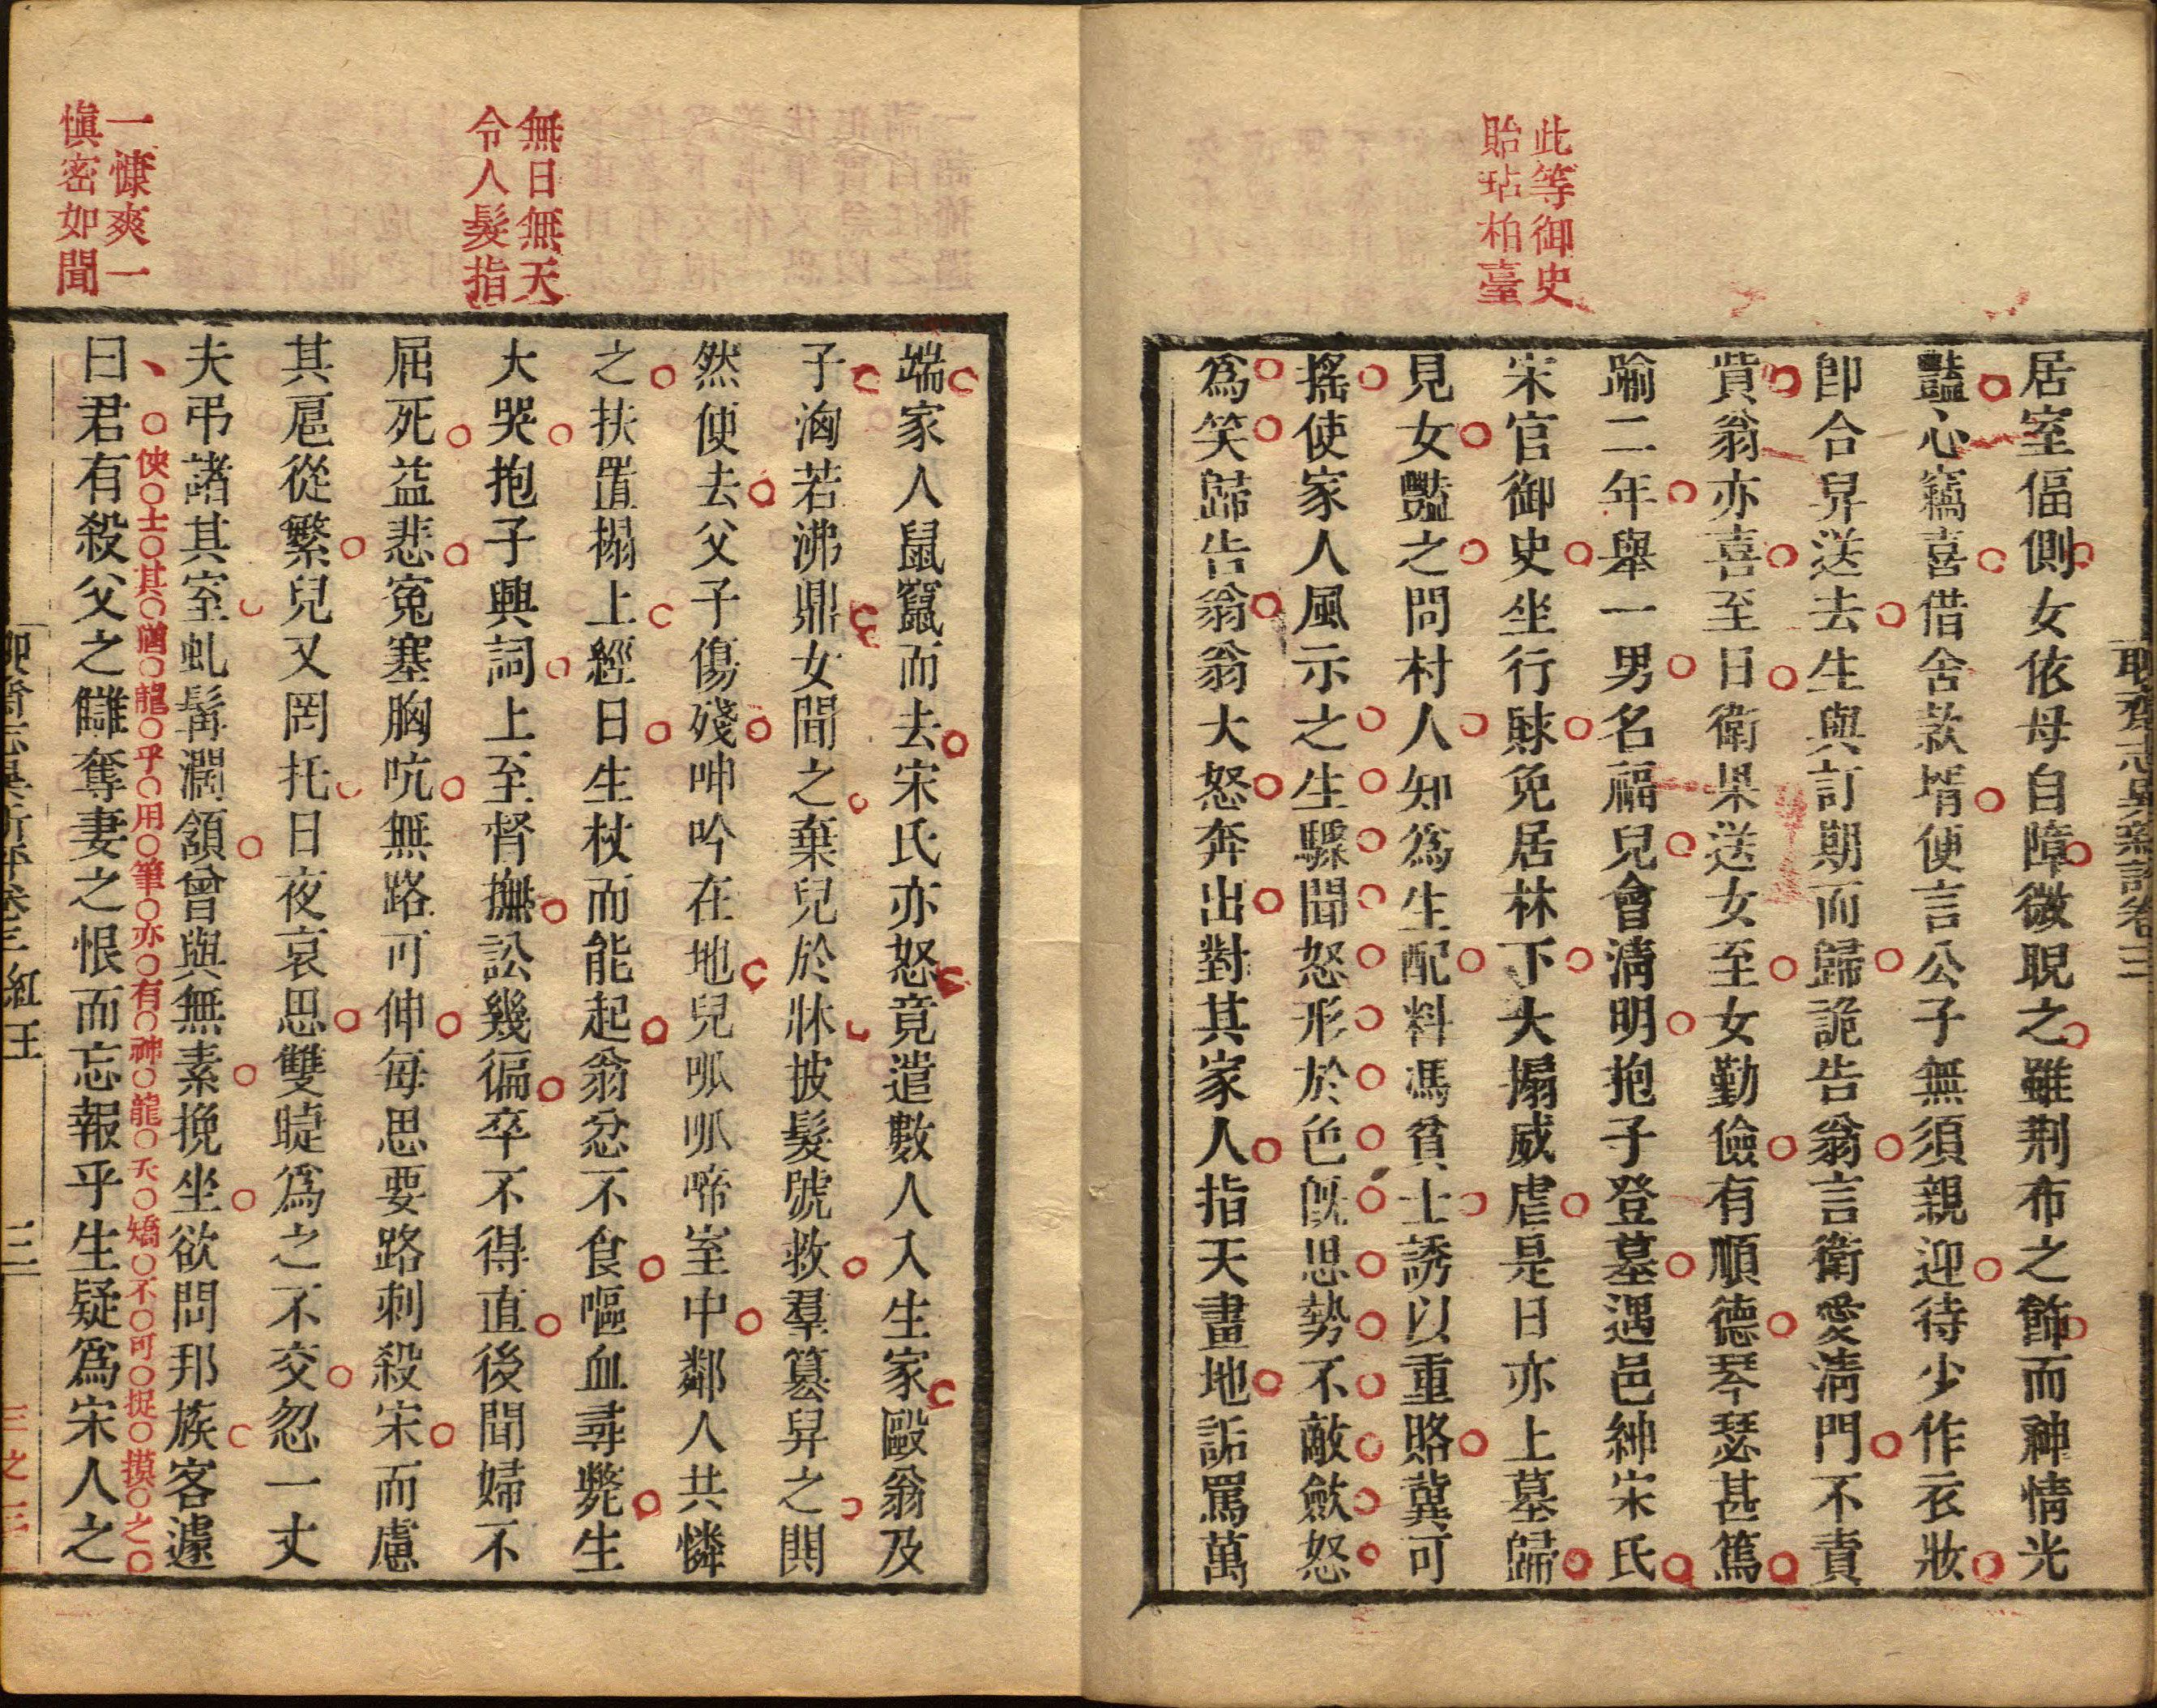 聊齋志異新評卷三
居室偪側女依母自障微睨之雖荆布之飾而神情光
豔心竊喜借舍款壻便言公子無須親迎待少作衣妝
卽合舁送去生與訂期而歸詭告翁言衛愛清門不責
貲翁亦喜至日衛果送女至女勤儉有順德琴瑟甚篤
踰二年舉一男名福兒會清明抱子登墓遇邑紳宋氏
宋官御史坐行賕免居林下大搧威虐是日亦上墓歸
見女豔之問村人知爲生配料馮貧士誘以重賂冀可
搖使家人風示之生驟聞怒形於色旣思勢不敵斂怒
爲笑歸告翁翁大怒奔出對其家人指天畫地詬罵萬
此等御史
貽玷柏臺
端家人鼠竄而去宋氏亦怒竟遣數人入生家毆翁及
子洶若沸鼎女聞之棄兒於牀披髮號救羣篡舁之閧
然便去父子傷殘呻吟在地兒呱呱啼室中鄰人共憐
之扶置榻上經日生杖而能起翁忿不食嘔血尋斃生
大哭抱子興詞上至督撫訟幾徧卒不得直後聞婦不
屈死益悲寃塞胸吭無路可伸每思要路刺殺宋而慮
其扈從繁兒又罔托日夜哀思雙睫爲之不交忽一丈
夫弔諸其室虬髯濶頷曾與無素挽坐欲問邦族客遽
曰君有殺父之讎奪妻之恨而忘報乎生疑爲宋人之
俠士其猶龍乎用筆亦有神龍夭矯不可捉摸之
無日無天
令人髮指
一慷爽一
愼密如聞
聊齋志異新評卷三 紅玉
三之三